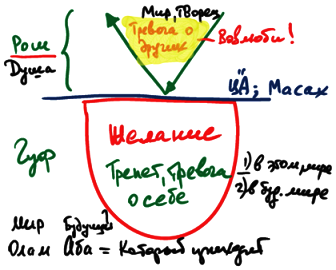 Мир, Творец
Тревога о
других
Возлюби!
Рош
Душа
ЦА; Масах
Желание
Гуф
Трепет, тревога
о себе
1) в этом мире
2) в буд. мире
Мир Будущий
Олам Аба = Который приходит